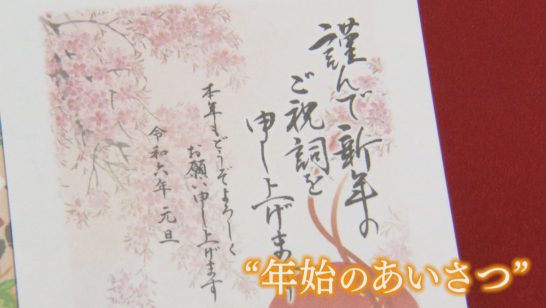 謹んで新年の
ご祝詞を
申し上げます
本年もどうぞよろしく
お願い申し上げます
令和六年 元旦
“年始のあいさつ”